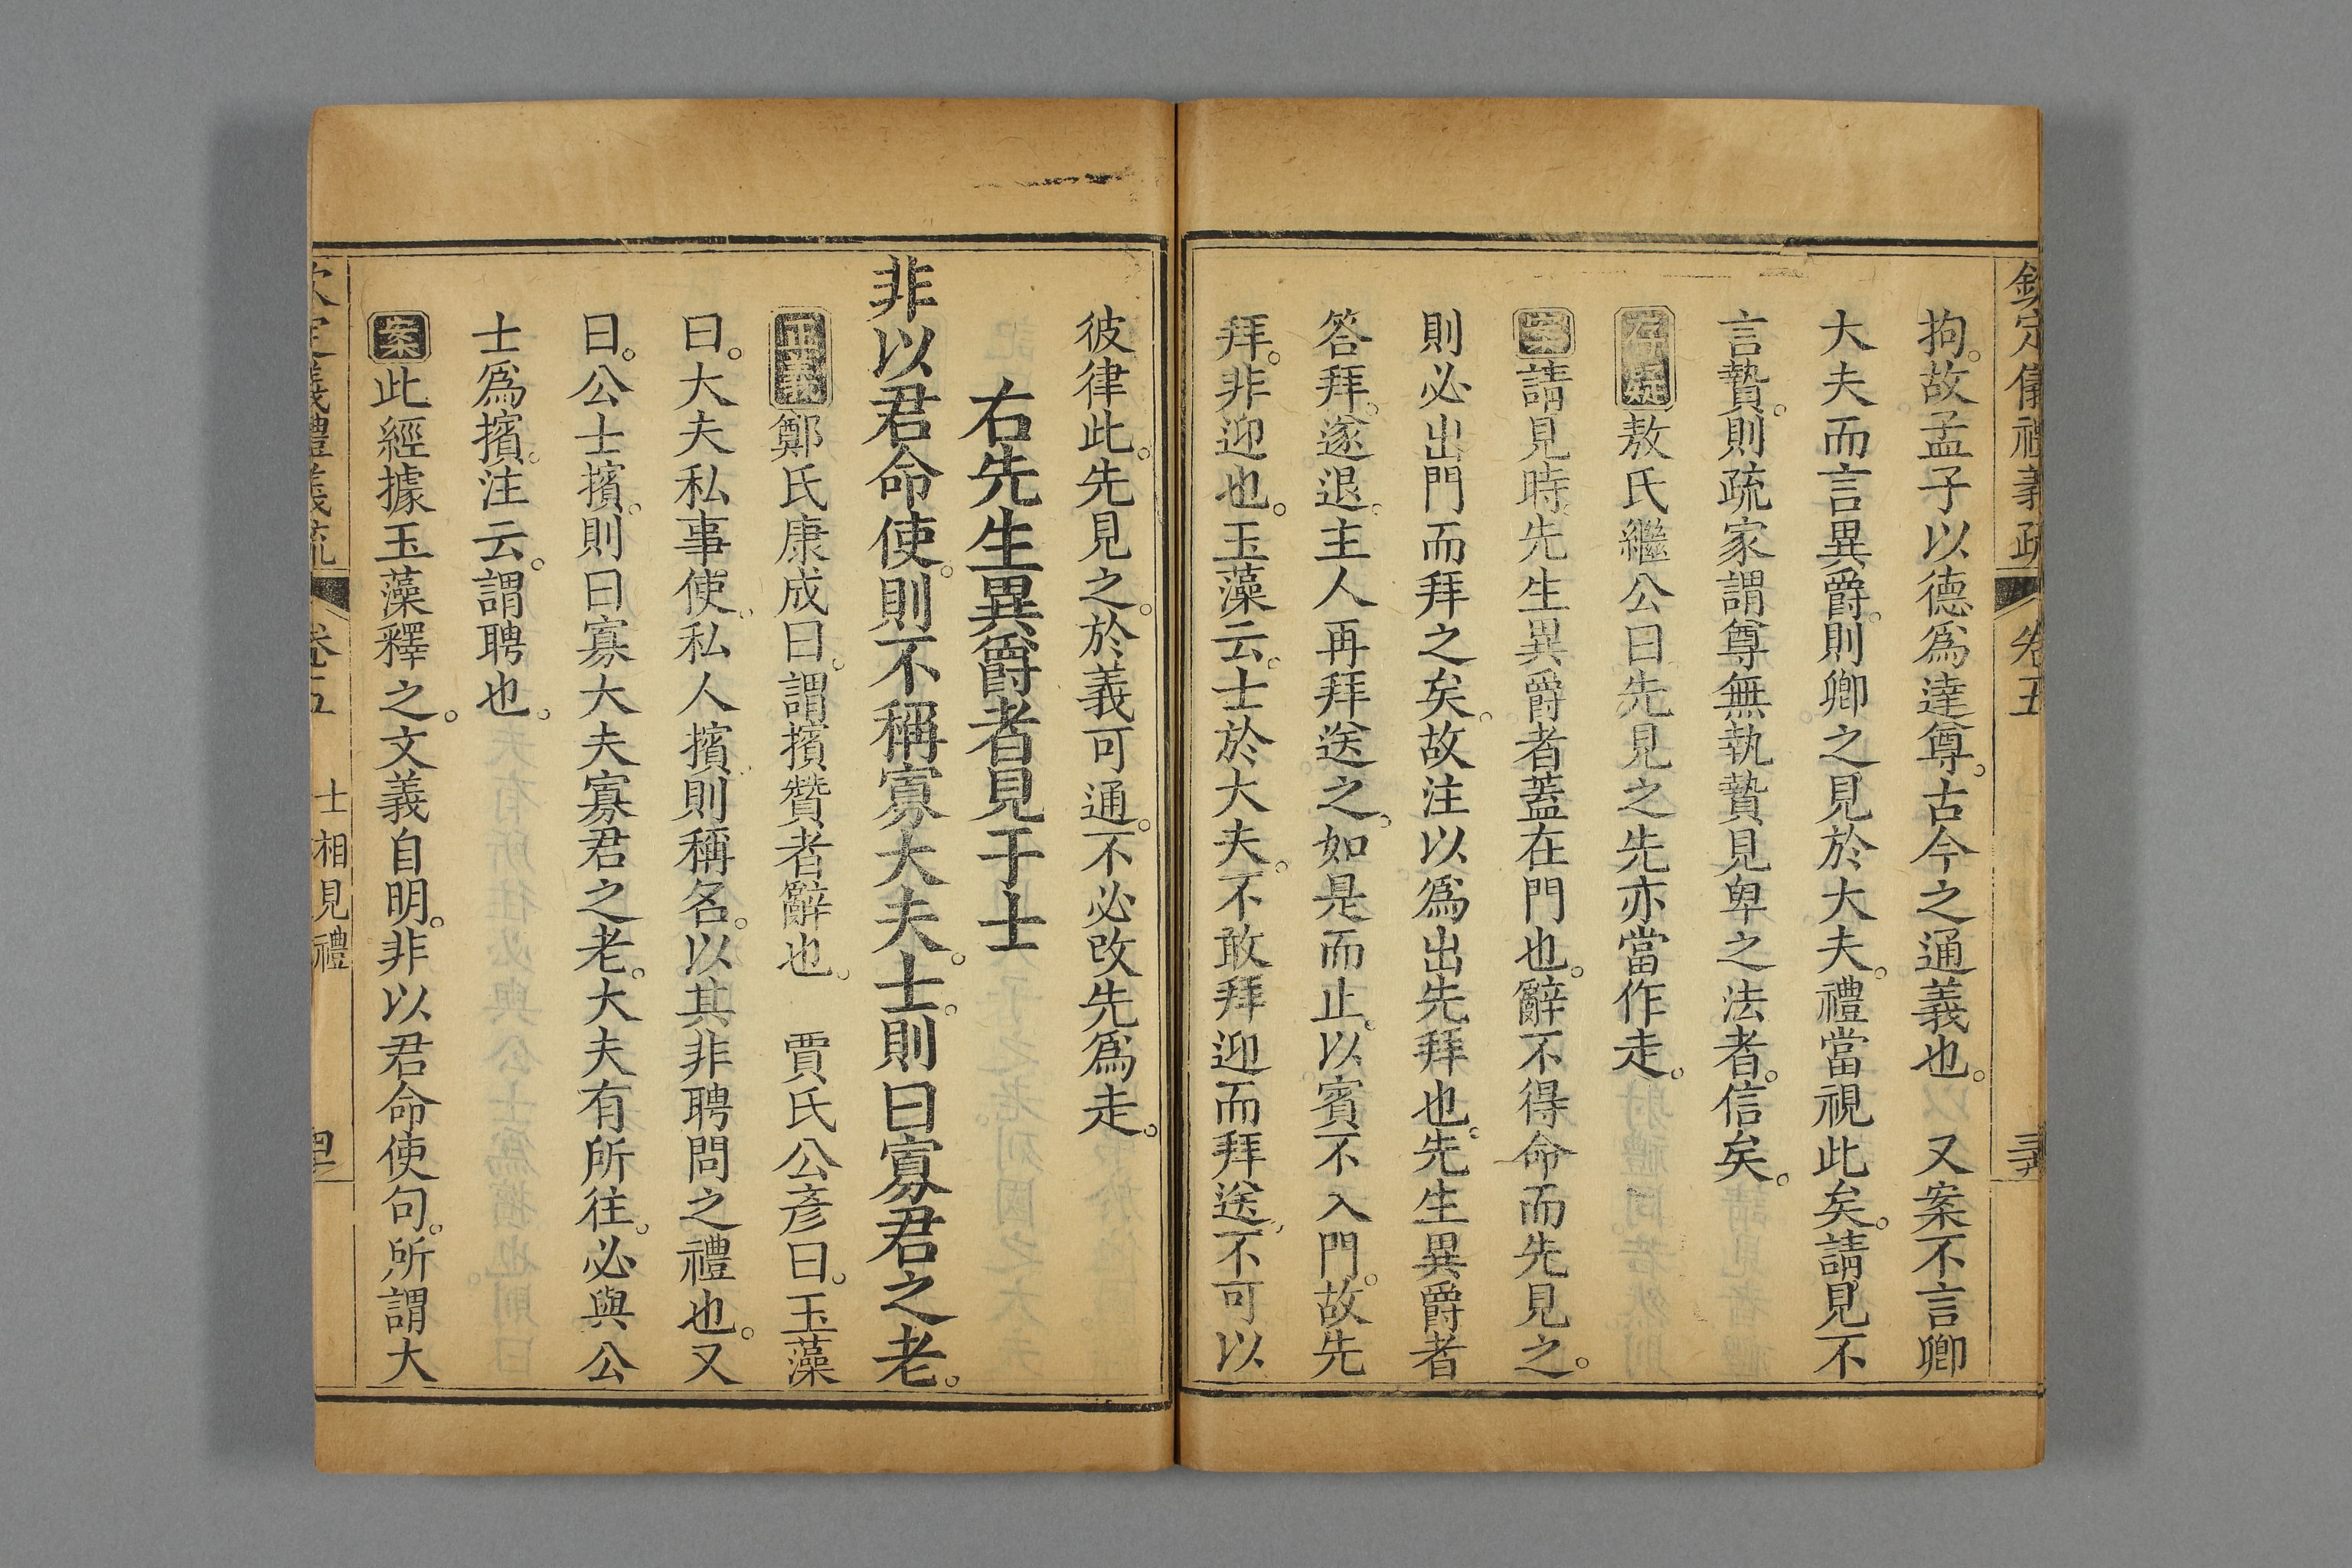 欽定儀禮義疏 卷五 三九
拘。故孟子以德爲達尊。古今之通義也。 又案不言卿
大夫而言異爵。則卿之見於大夫。禮當視此矣。請見不
言贄。則疏家謂尊無執贄見卑之法者。信矣。
存疑敖氏繼公曰先見之先亦當作走。
案請見時。先生異爵者蓋在門也。辭不得命而先見之。
則必出門而拜之矣。故注以爲出先拜也。先生異爵者
答拜。遂退。主人再拜送之。如是而止。以賓不入門。故先
拜。非迎也。玉藻云。士於大夫。不敢拜迎而拜送。不可以
彼律此。先見之。於義可通。不必改先爲走。
右先生異爵者見于士
非以君命使。則不稱寡大夫。士。則曰寡君之老。
正義鄭氏康成曰。謂擯贊者辭也。 賈氏公彥曰。玉藻
曰。大夫私事使。私人擯。則稱名。以其非聘問之禮也。又
曰。公士擯。則曰寡大夫寡君之老。大夫有所往。必與公
士爲擯。注云。謂聘也。
案此經據玉藻釋之。文義自明。非以君命使句。所謂大
欽定儀禮義疏 卷五 士相見禮